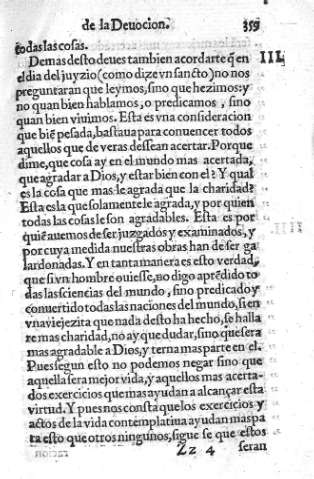 de la Deuocion. 359
todas las cosas.
Demas desto deues tambien acordarte q̃ en III.
el dia del juyzio (como dize vn sancto) no nos
preguntaran que leymos, sino que hezimos: y
no quan bien hablamos, o predicamos, sino
quan bien viuimos. Esta es vna consideracion
que biẽ pesada, bastaua para conuencer todos
aquellos que de veras dessean acertar. Porque
dime, que cosa ay en el mundo mas acertada,
que agradar a Dios, y estar bien con el? Y qual
es la cosa que mas le agrada que la charidad?
Esta es la que solamente le agrada, y por quien
todas las cosas le son agradables. Esta es por
quiẽ auemos de ser juzgados y examinados, y
por cuya medida nuestras obras han de ser ga
lardonadas. Y en tanta manera es esto verdad,
que si vn hombre ouiesse, no digo aprẽdido to
das las sciencias del mundo, sino predicado y
conuertido todas las naciones del mundo, si en
vna viejezita que nada desto ha hecho, se halla
re mas charidad, no ay que dudar, sino que sera
mas agradable a Dios, y terna mas parte en el.
Pues segun esto no podemos negar sino que
aquella sera mejor vida, y aquellos mas acerta-
dos exercicios que mas ayudan a alcançar esta
virtud. Y pues nos consta que los exercicios y
actos de la vida contemplatiua ayudan mas pa
ra esto que otros ningunos, sigue se que estos
Zz 4 seran